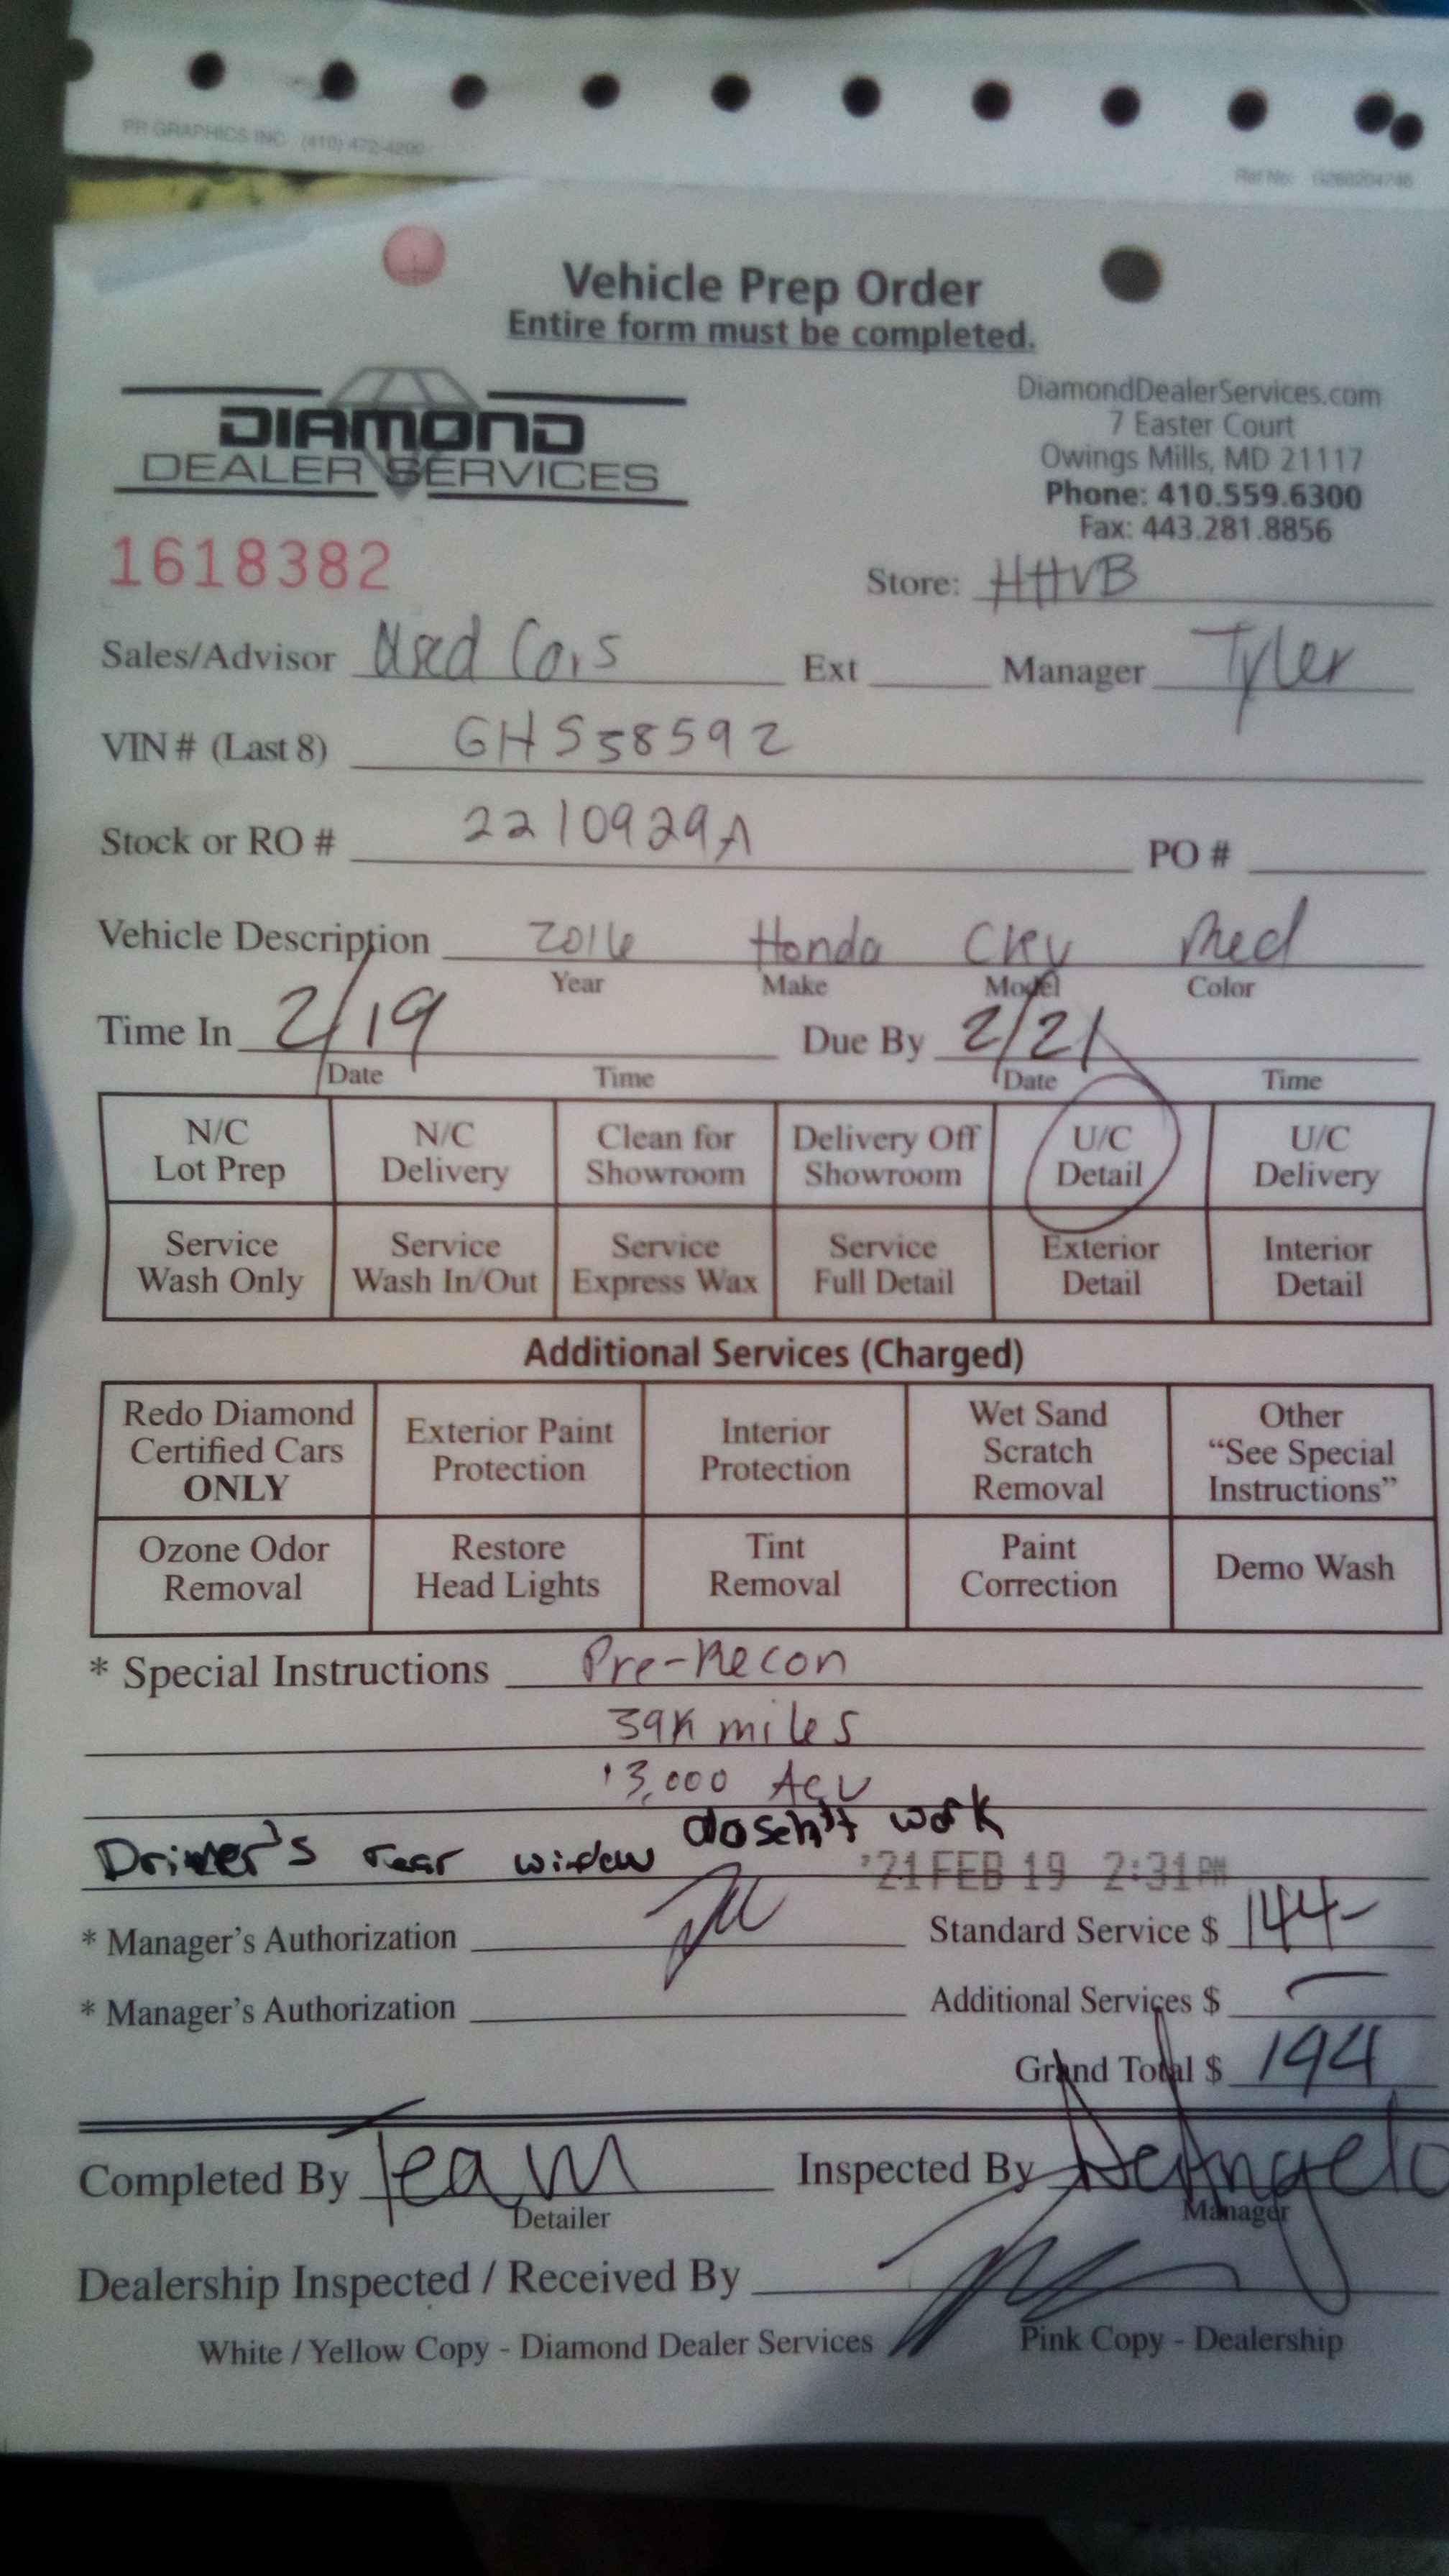 PR GRAPHICS INC (410) 472-4200
Ref No: G260204746
Vehicle Prep Order
Entire form must be completed.
DIAMOND
DEALER SERVICES
DiamondDealerServices.com
7 Easter Court
Owings Mills, MD 21117
Phone: 410.559.6300
Fax: 443.281.8856
1618382
Store: HHVB
Sales/Advisor Used Cars Ext Manager Tyler
VIN # (Last 8) GHS38592
Stock or RO # 2210929A PO #
Vehicle Description 2016 Honda CRV Red
Year Make Model Color
Time In 2/19 Due By 2/21
Date Time Date Time
N/C Lot Prep N/C Delivery Clean for Showroom Delivery Off Showroom U/C Detail U/C Delivery
Service Wash Only Service Wash In/Out Service Express Wax Service Full Detail Exterior Detail Interior Detail
Additional Services (Charged)
Redo Diamond Certified Cars ONLY Exterior Paint Protection Interior Protection Wet Sand Scratch Removal Other "See Special Instructions"
Ozone Odor Removal Restore Head Lights Tint Removal Paint Correction Demo Wash
* Special Instructions Pre-Recon
39K miles
13,000 ACV
Driver's rear window dosen't work
'21 FEB 19 2:31PM
* Manager's Authorization Standard Service $ 144-
* Manager's Authorization Additional Services $ —
Grand Total $ 194
Completed By Team Inspected By DeAngelo
Detailer Manager
Dealership Inspected / Received By
White / Yellow Copy - Diamond Dealer Services Pink Copy - Dealership